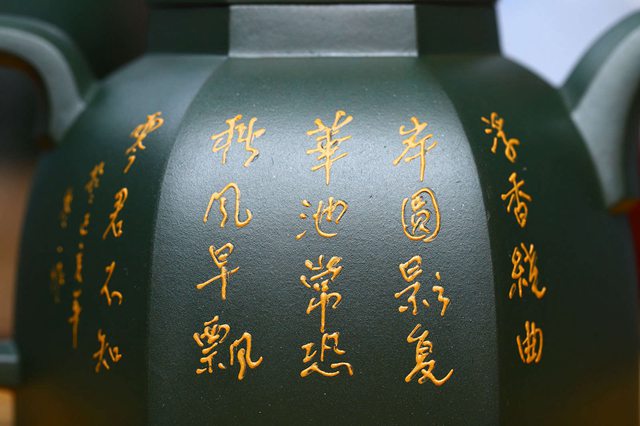 浮香繞曲
岸圓影复
華池常恐
秋風早飄
零君不知